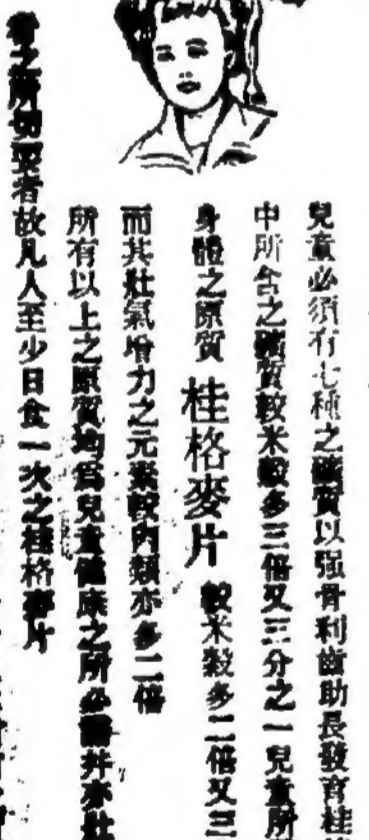 兒童必須有七種之礦質以强骨利齒助長發育桂
中所含之礦質較米穀多三倍又三分之一兒童所
身體之原質 桂格麥片 較米穀多二倍又三
而其壯氣增力之元素較肉類亦多二倍
所有以上之原質均爲兒童健康之所必需并亦壯
者之所切要者故凡人至少日食一次之桂格麥片